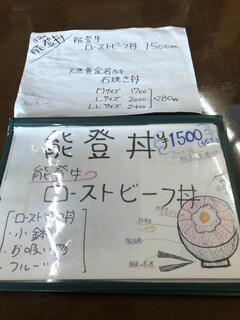 能登丼
能登牛
ローストビーフ丼 1500円
天然黄金岩カキ
石焼き丼
Mサイズ 1700
Lサイズ 2000
LLサイズ 2400
+280円
能登丼
¥1500
能登牛
ローストビーフ丼
ローストビーフ丼
・小鉢
・お吸い物
・フルーツ